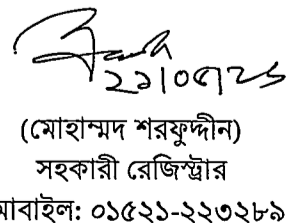 (মোহাম্মদ শরফুদ্দীন)
সহকারী রেজিস্ট্রার
মাবাইল: ০১৫২১-২২৩২৮৯